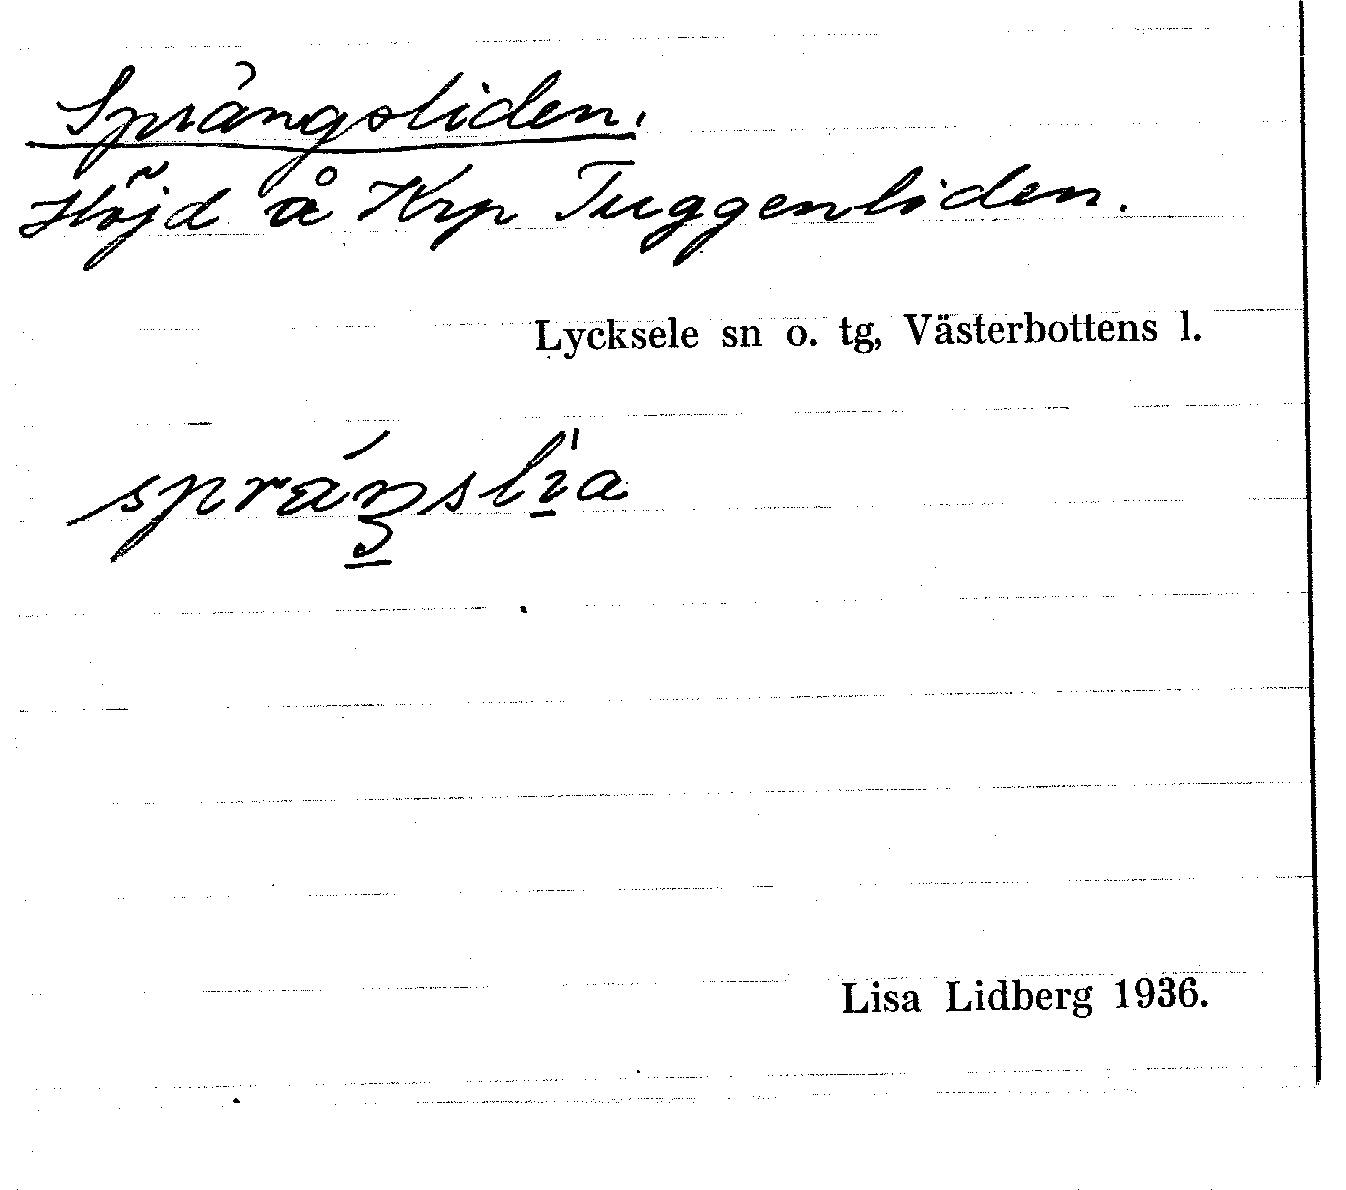 Sprängsliden.
Höjd å Krp Tuggenliden.
Lycksele sn o. tg, Västerbottens l.
spráŋslìa
Lisa Lidberg 1936.